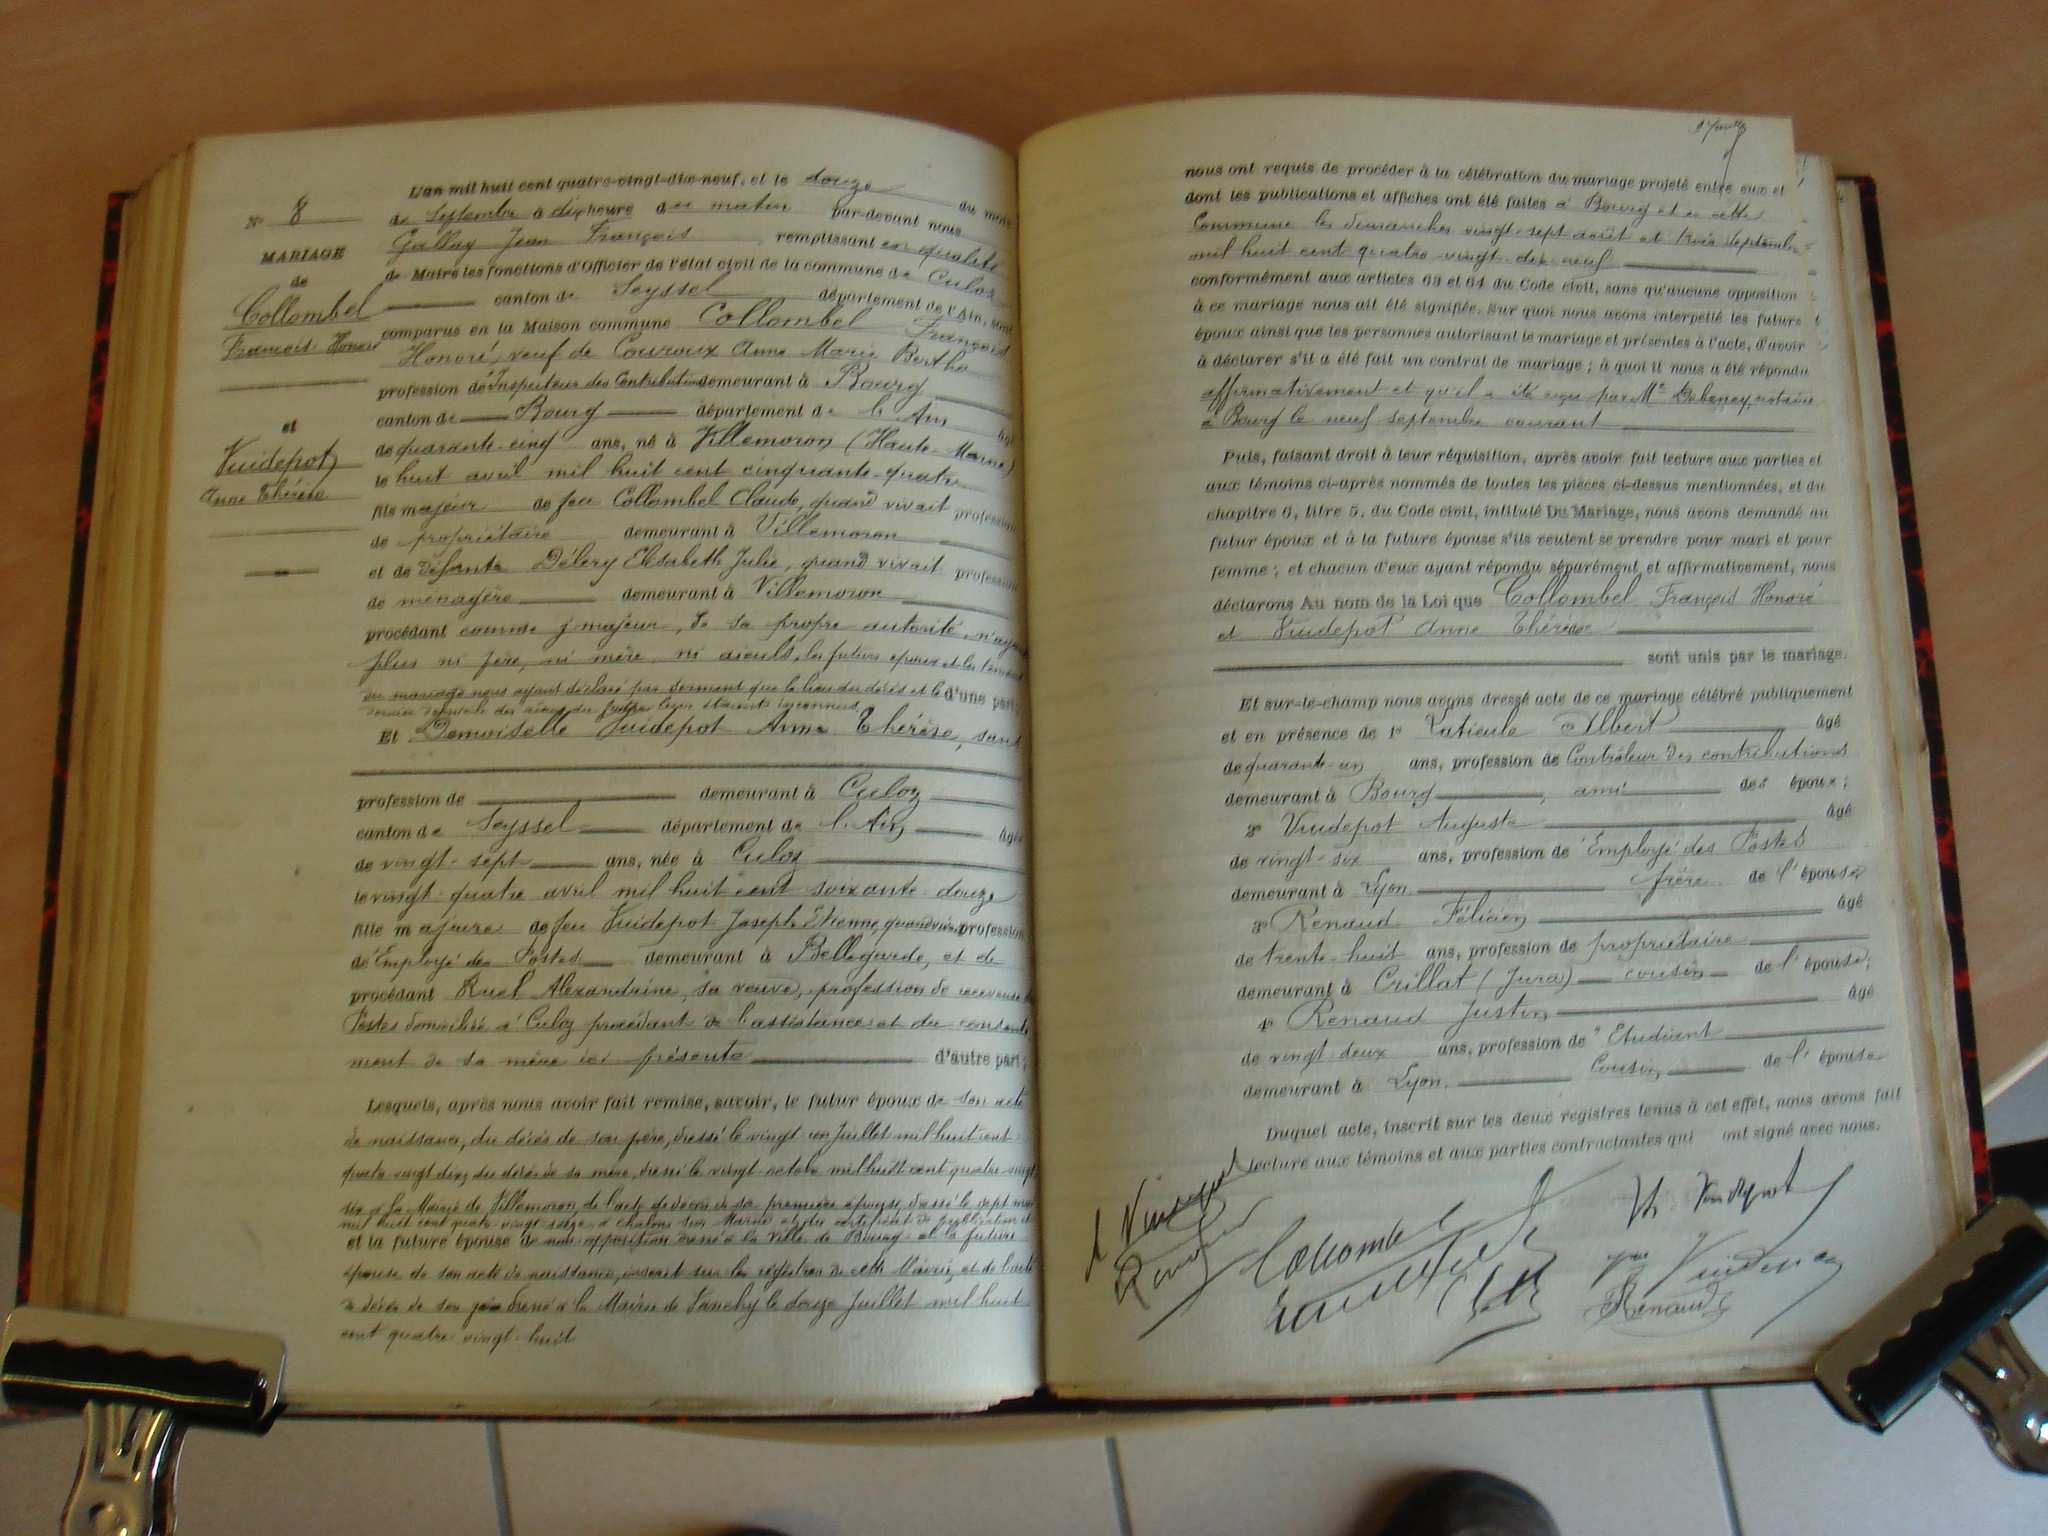 N° 8
MARIAGE
de
Collombel
François Honoré
et
Vuidepot
Anne Thérèse
L'an mil huit cent quatre-vingt-dix-neuf, et le douze du mois
de Septembre à dix heure du matin par-devant nous
Gallay Jean François, remplissant en qualité
de Maire les fonctions d'Officier de l'état civil de la commune de Culoz
canton de Seyssel département de l'Ain, sont
comparus en la Maison commune Collombel François
Honoré, veuf de Couroux Anne Marie Berthe
profession de Inspecteur des Contributions demeurant à Bourg
canton de Bourg département de l'Ain âgé
de quarante-cinq ans, né à Villemoron (Haute-Marne)
le huit avril mil huit cent cinquante-quatre
fils majeur de feu Collombel Claude, quand vivait profession
de propriétaire demeurant à Villemoron
et de défunte Déléry Elisabeth Julie, quand vivait profession
de ménagère demeurant à Villemoron
procédant comme majeur, de sa propre autorité, n'ayant
plus ni père, ni mère, ni aïeuls, les futurs époux et les témoins
du mariage nous ayant déclaré par serment que le lieu du décès et le d'une part;
dernier domicile des aïeux du futur leur étaient inconnus
Et Demoiselle Vuidepot Anne Thérèse, sans
profession de demeurant à Culoz
canton de Seyssel département de l'Ain âgée
de vingt-sept ans, née à Culoz
le vingt-quatre avril mil huit cent soixante-douze
fille majeure de feu Vuidepot Joseph Etienne, quand vivait profession
de Employé des Postes demeurant à Bellegarde, et de
procédant Ruel Alexandrine, sa veuve, profession de receveuse des
Postes domiciliée à Culoz procédant de l'assistance et du consente
ment de sa mère ici présente d'autre part;
Lesquels, après nous avoir fait remise, savoir, le futur époux de son acte
de naissance, du décès de son père, dressé le vingt-un Juillet mil huit cent
quatre vingt dix, du décès de sa mère, dressé le vingt octobre mil huit cent quatre-vingt
six à la Mairie de Villemoron, de l'acte de décès de sa première épouse, dressé le sept mai
mil huit cent quatre-vingt seize à Chalons sur Marne et du certificat de publication et
et la future épouse de non opposition dressé à la ville de Bourg et la future
épouse de son acte de naissance, inscrit sur les registres de cette Mairie, et de l'acte
de décès de son père dressé à la Mairie de Vanchy le douze Juillet mil huit
cent quatre vingt-huit
nous ont requis de procéder à la célébration du mariage projeté entre eux et
dont les publications et affiches ont été faites à Bourg et en cette
Commune les dimanches vingt-sept août et trois Septembre
mil huit cent quatre vingt-dix neuf
conformément aux articles 63 et 64 du Code civil, sans qu'aucune opposition
à ce mariage nous ait été signifiée. Sur quoi nous avons interpellé les futurs
époux ainsi que les personnes autorisant le mariage et présentes à l'acte, d'avoir
à déclarer s'il a été fait un contrat de mariage; à quoi il nous a été répondu
affirmativement et qu'il a été reçu par Me Dubeney, notaire
à Bourg le neuf septembre courant
Puis, faisant droit à leur réquisition, après avoir fait lecture aux parties et
aux témoins ci-après nommés de toutes les pièces ci-dessus mentionnées, et du
chapitre 6, titre 5, du Code civil, intitulé Du Mariage, nous avons demandé au
futur époux et à la future épouse s'ils veulent se prendre pour mari et pour
femme; et chacun d'eux ayant répondu séparément et affirmativement, nous
déclarons Au nom de la Loi que Collombel François Honoré
et Vuidepot Anne Thérèse
sont unis par le mariage.
Et sur-le-champ nous avons dressé acte de ce mariage célébré publiquement
et en présence de 1° Latieule Albert âgé
de quarante-un ans, profession de Contrôleur des contributions
demeurant à Bourg, ami des époux;
2° Vuidepot Auguste âgé
de vingt-six ans, profession de Employé des Postes
demeurant à Lyon frère de l'épouse
3° Renaud Félicien âgé
de trente-huit ans, profession de propriétaire
demeurant à Crillat (Jura) cousin de l'épouse;
4° Renaud Justin âgé
de vingt deux ans, profession de Etudiant
demeurant à Lyon. Cousin de l'épouse
Duquel acte, inscrit sur les deux registres tenus à cet effet, nous avons fait
lecture aux témoins et aux parties contractantes qui ont signé avec nous.
Th. Vuidepot
Collombel
Renaud